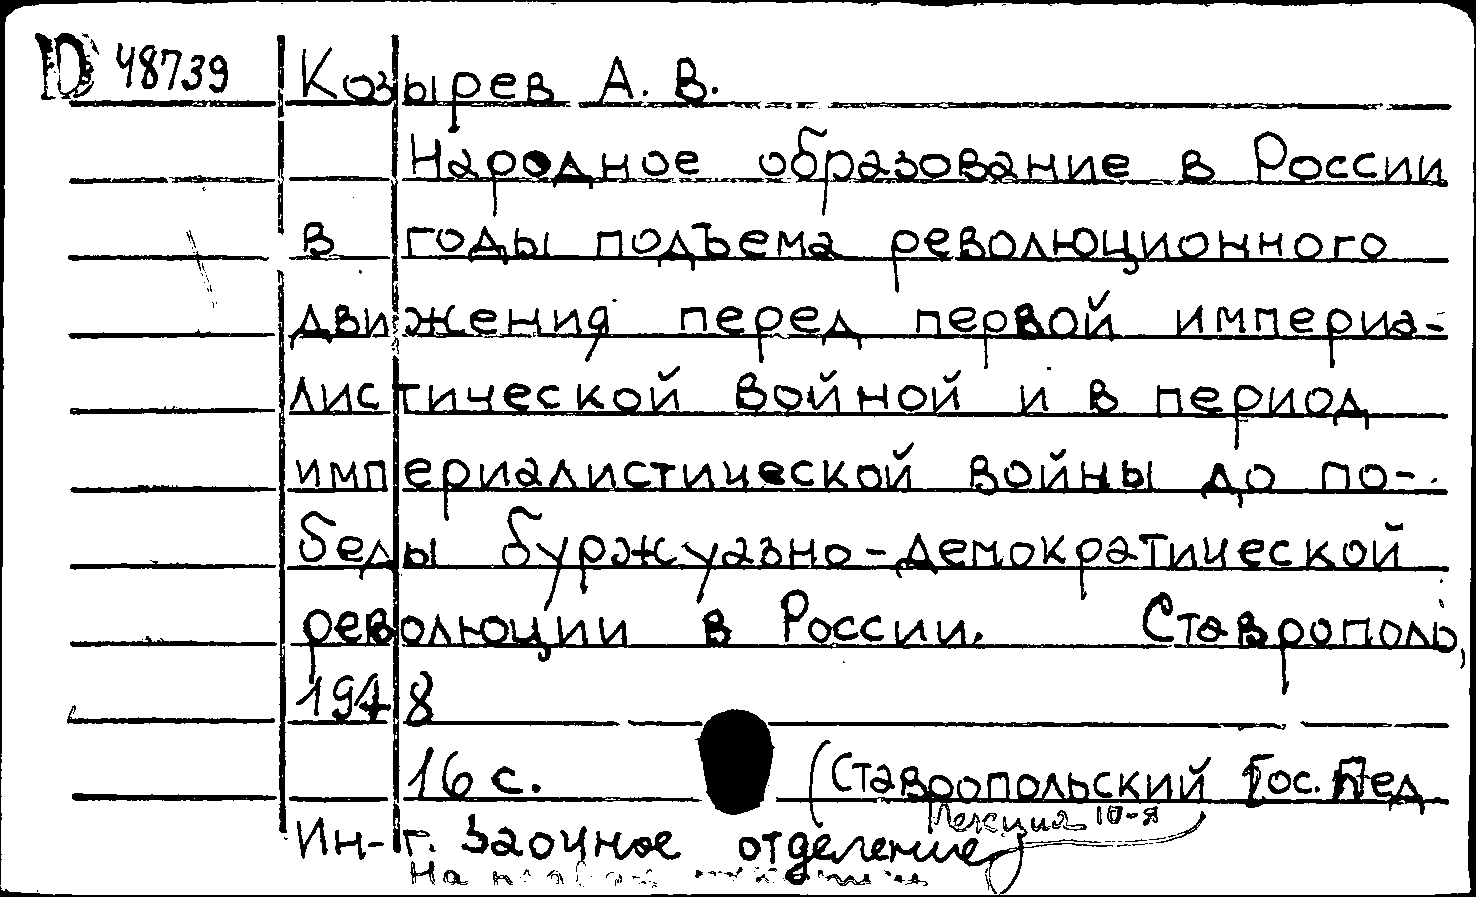 D 48739 Козырев А. В.
Народное образование в России
в годы подъема революционного
движения перед первой империа-
листической войной и в период
империалистической войны до по-
беды буржуазно-демократической
революции в России. Ставрополь,
1948
16 с. (Ставропольский Гос. Пед
Лекция 10-я
Ин-т. Заочное отделение)
На правах рукописи